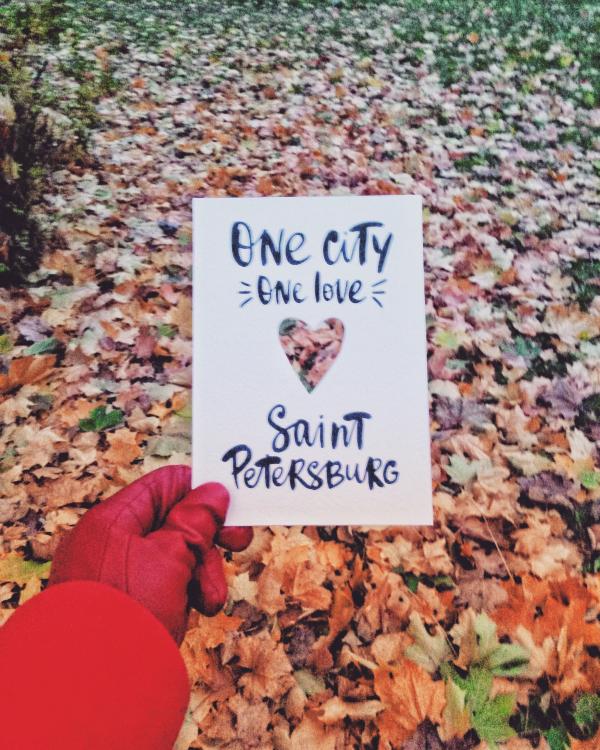 ONE CITY
ONE love
Saint
PETERSBURG